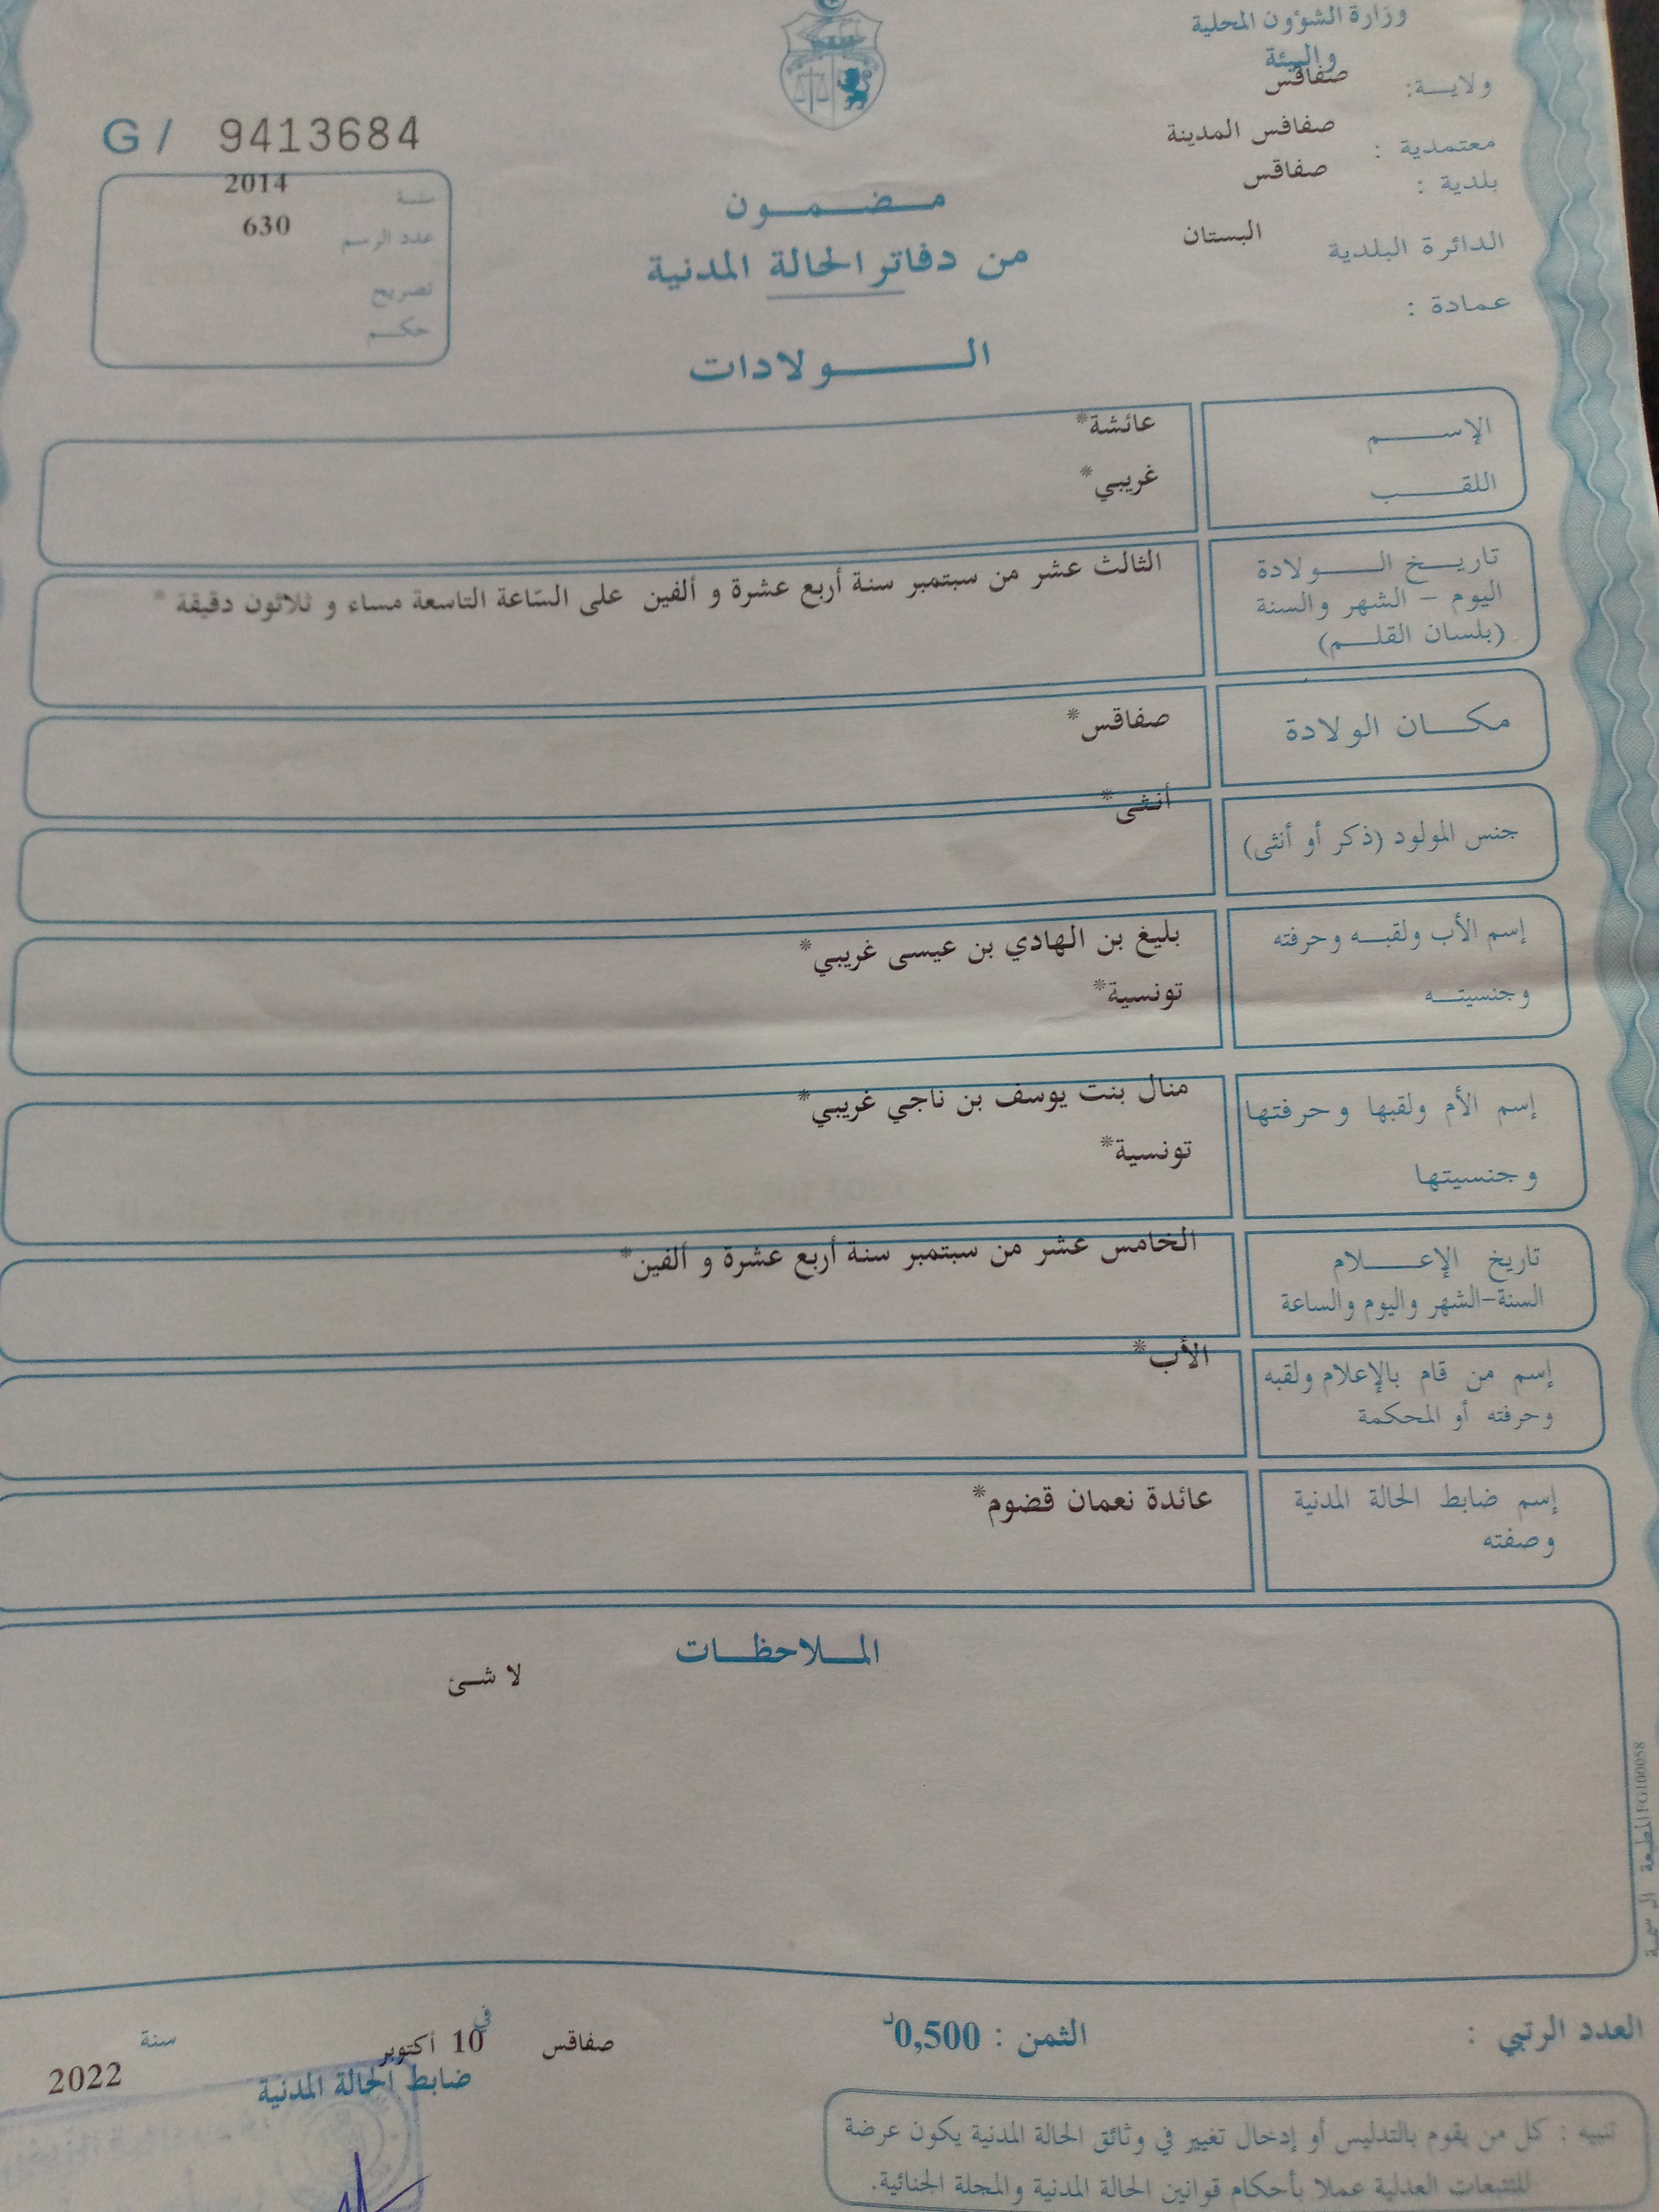 وزارة الشؤون المحلية
والبيئة
ولايـــة: صفاقس
معتمدية : صفاقس المدينة
بلدية : صفاقس
الدائرة البلدية البستان
عمادة :
G / 9413684
سنـة 2014
عدد الرسم 630
تصريح
حكـــم
مـــضـــمـــون
من دفاتر الحالة المدنية
الـــــــولادات
الإســــــم عائشة*
اللقــــــب غريبي*
تاريـــخ الـــــولادة
اليوم – الشهر والسنة
(بلسان القلـــم)
الثالث عشر من سبتمبر سنة أربع عشرة و ألفين على السّاعة التاسعة مساء و ثلاثون دقيقة *
مكـــان الولادة صفاقس*
جنس المولود (ذكر أو أنثى) أنثى*
إسم الأب ولقبـــه وحرفته بليغ بن الهادي بن عيسى غريبي*
وجنسيتـــه تونسية*
إسم الأم ولقبها وحرفتها منال بنت يوسف بن ناجي غريبي*
وجنسيتها تونسية*
تاريخ الإعـــــلام الخامس عشر من سبتمبر سنة أربع عشرة و ألفين*
السنة–الشهر واليوم والساعة
إسم من قام بالإعلام ولقبه الأب*
وحرفته أو المحكمة
إسم ضابط الحالة المدنية عائدة نعمان قضوم*
وصفته
المـــلاحظـــات
لا شـئ
المطبعة الرسمية FG100058
العدد الرتبي :
الثمن : 0,500د
صفاقس في 10 أكتوبر سنة 2022
ضابط الحالة المدنية
تنبيه : كل من يقوم بالتدليس أو إدخال تغيير في وثائق الحالة المدنية يكون عرضة
للتتبعات العدلية عملا بأحكام قوانين الحالة المدنية والمجلة الجنائية.